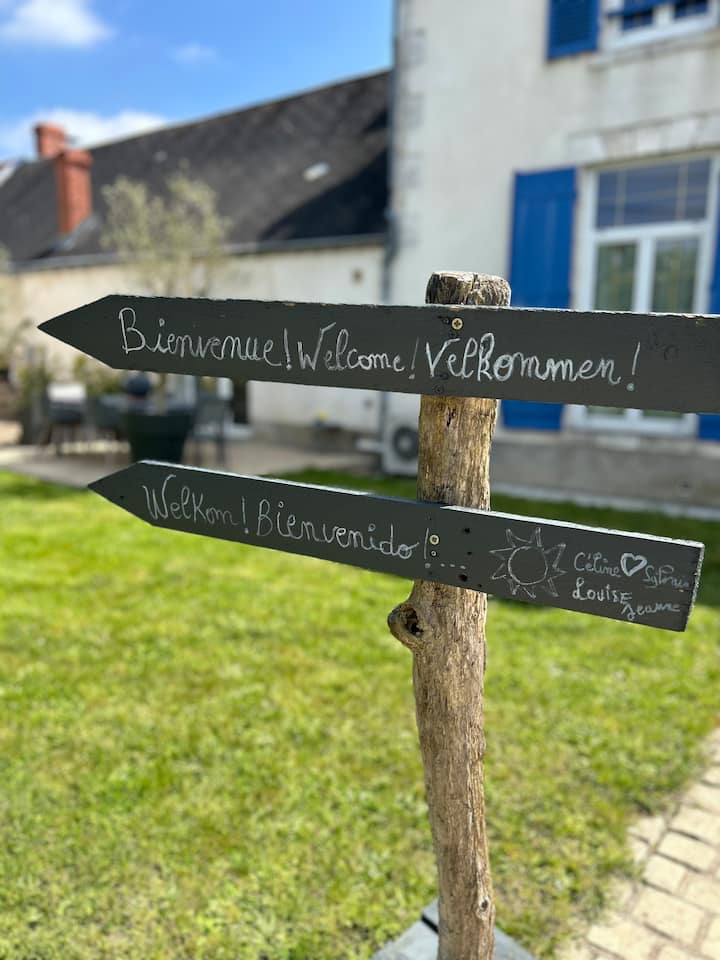 Bienvenue! Welcome! Velkommen!
Welkom! Bienvenido!
Céline Sylvain
Louise
Jeanne